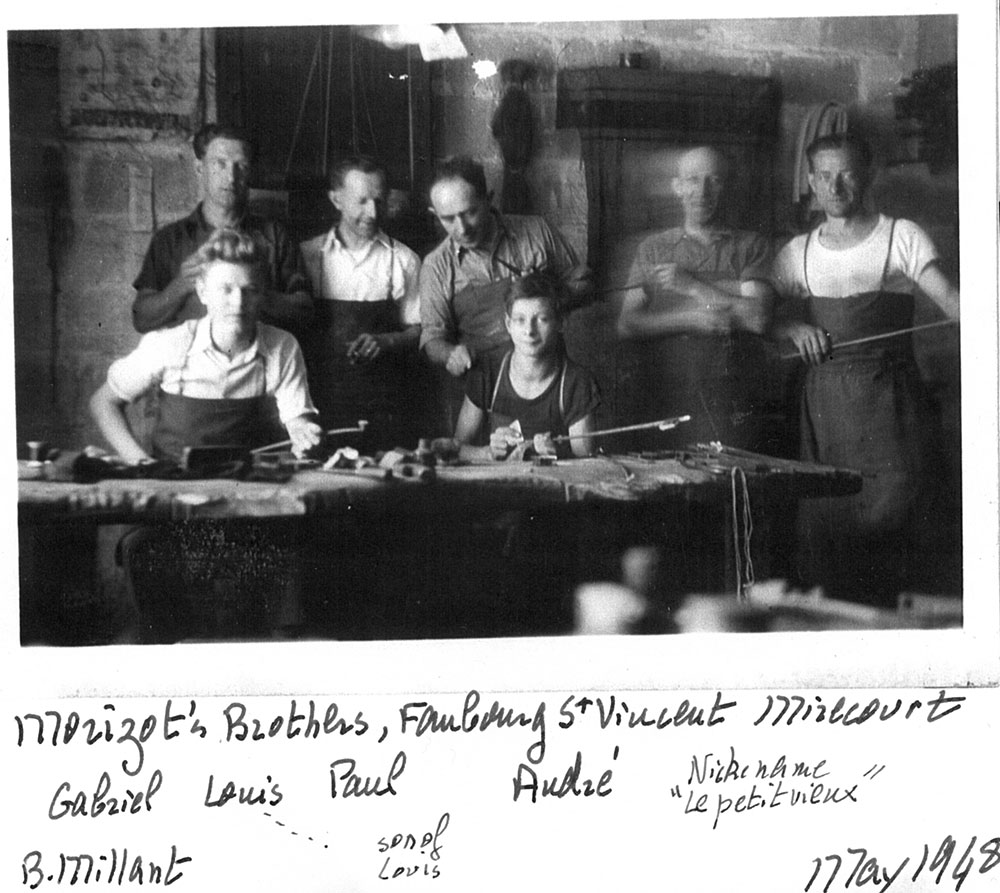 Morizot's Brothers, Faubourg St Vincent Mirecourt
Gabriel Louis Paul André Nickename
"Le petit vieux"
son of
B. Millant Louis May 1948